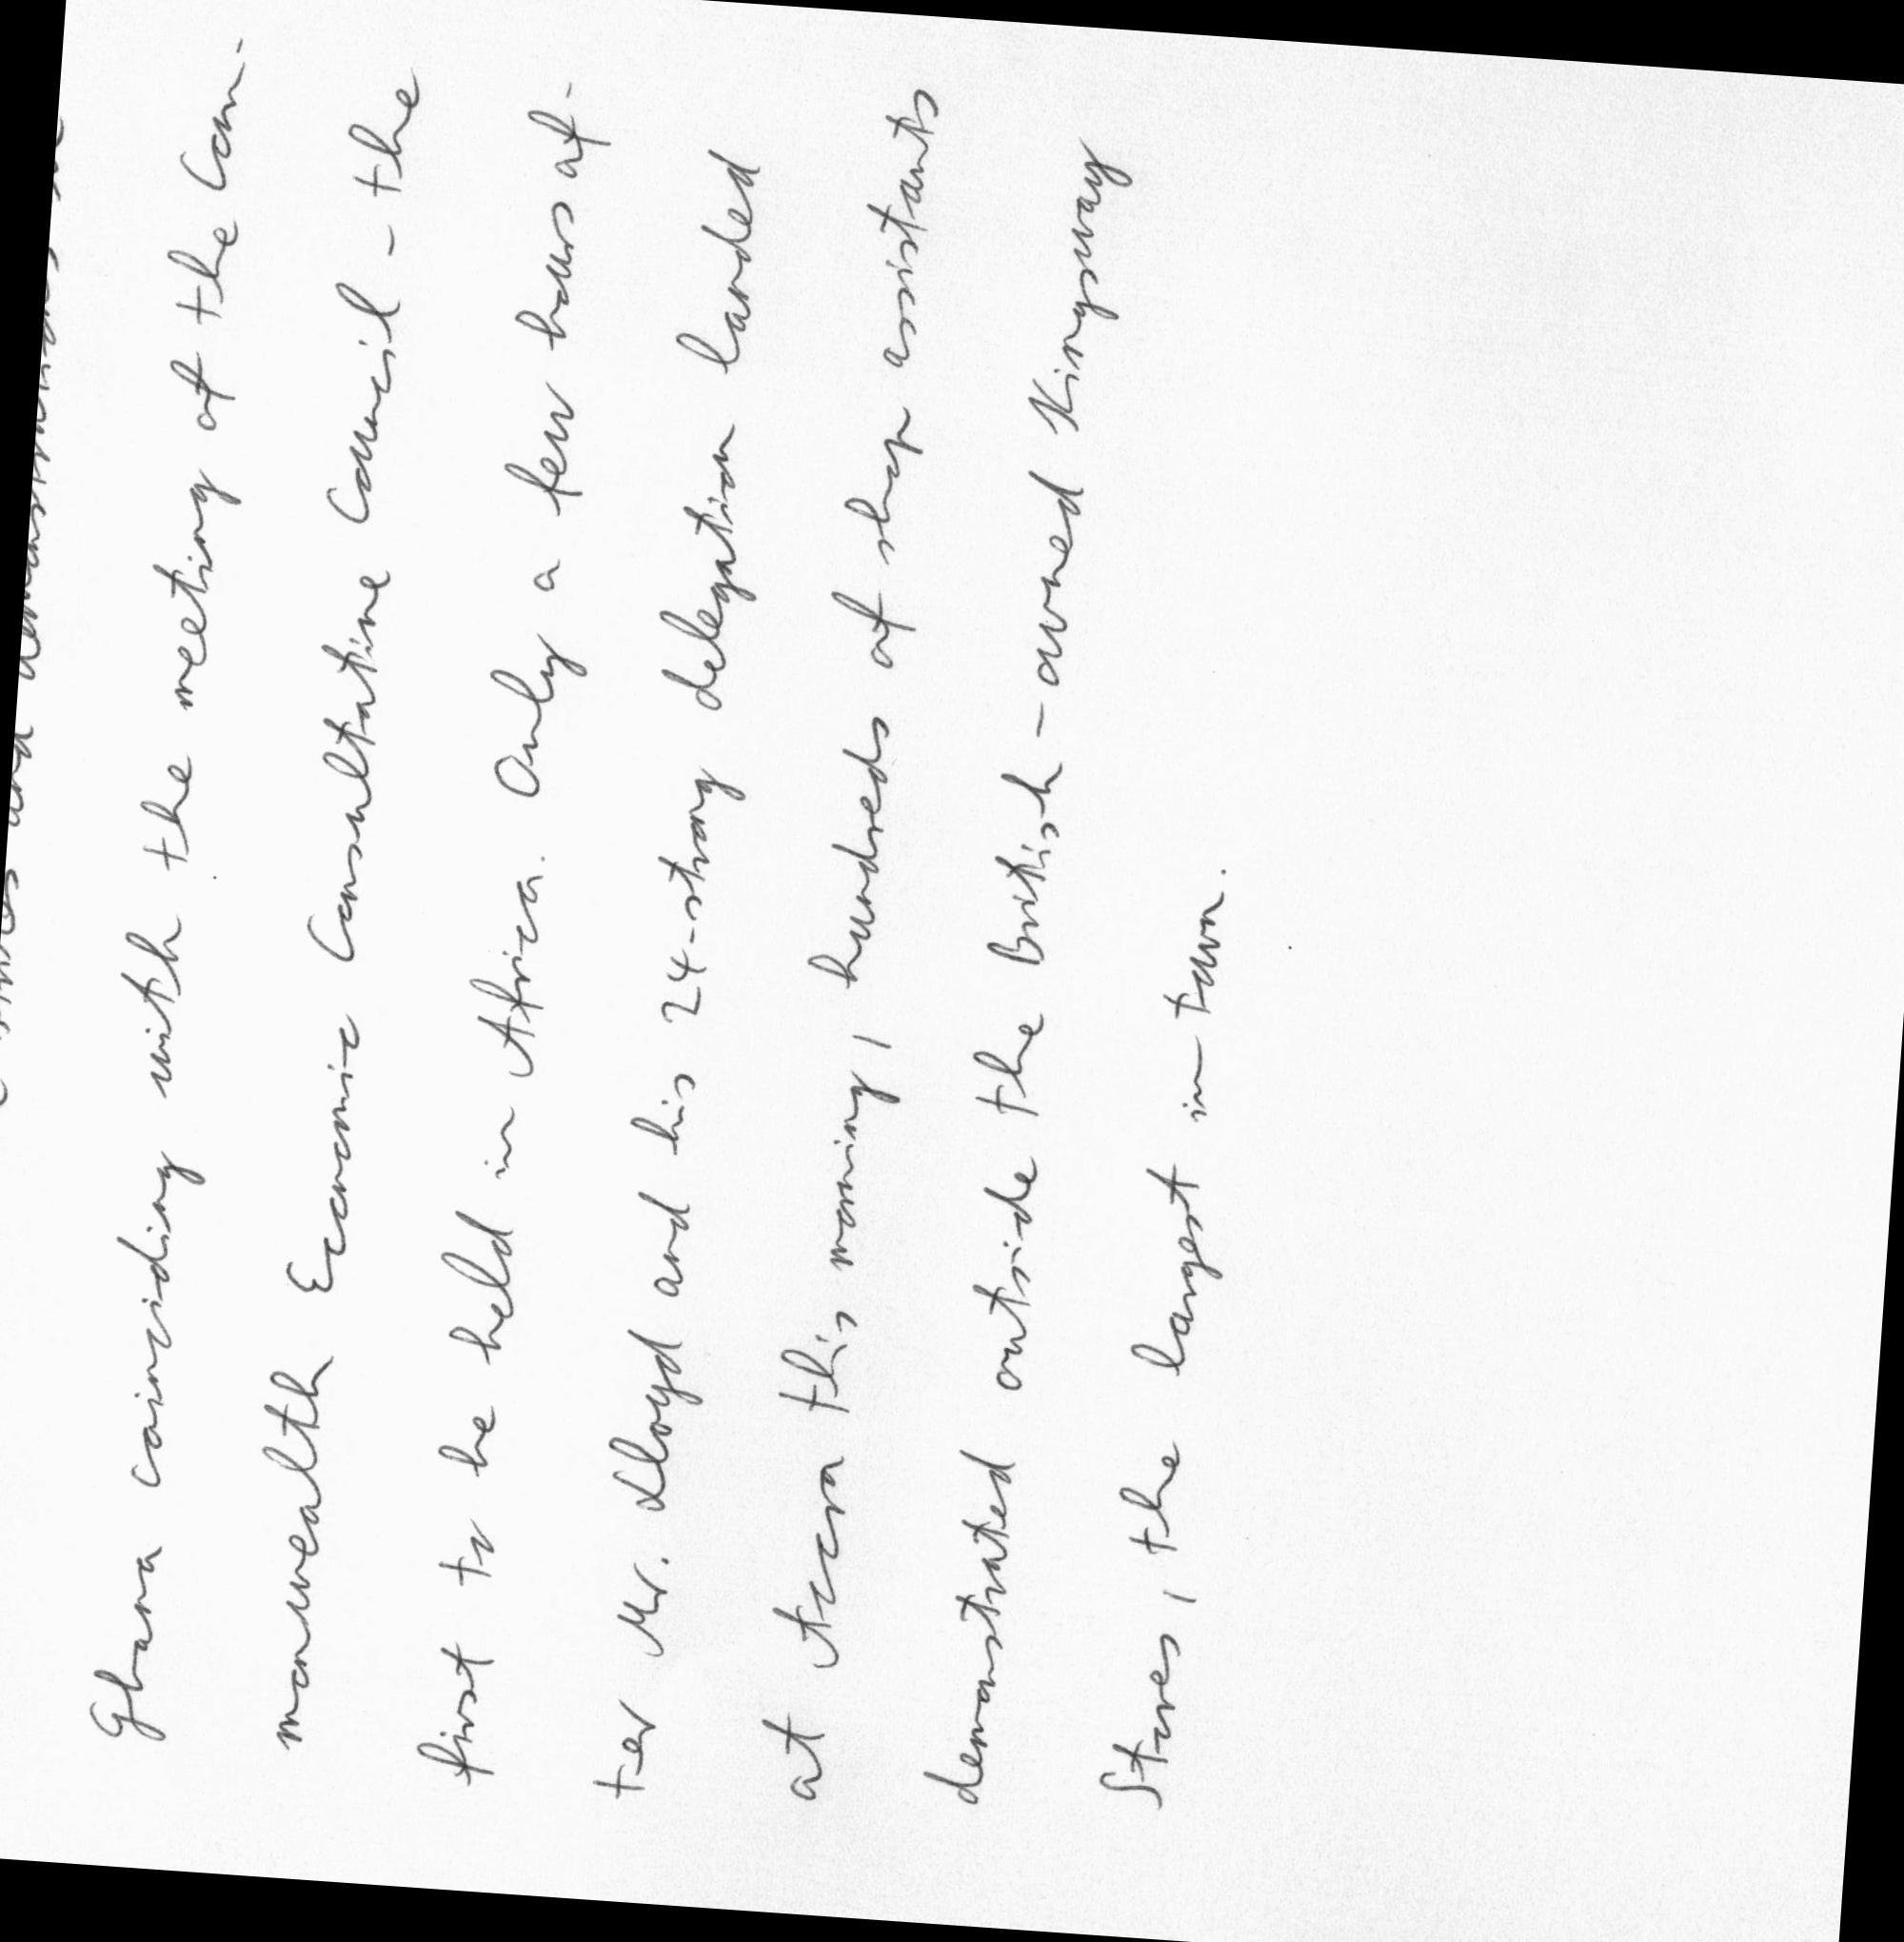 and demonstrations in
Ghana coinciding with the meeting of the Com-
monwealth Economic Consultative Council - the
first to be held in Africa. Only a few hours af-
ter Mr. Lloyd and his 24-strong delegation landed
at Accra this morning, hundreds of shop assistants
demonstrated outside the British-owned Kingsway
Stores, the largest in town.